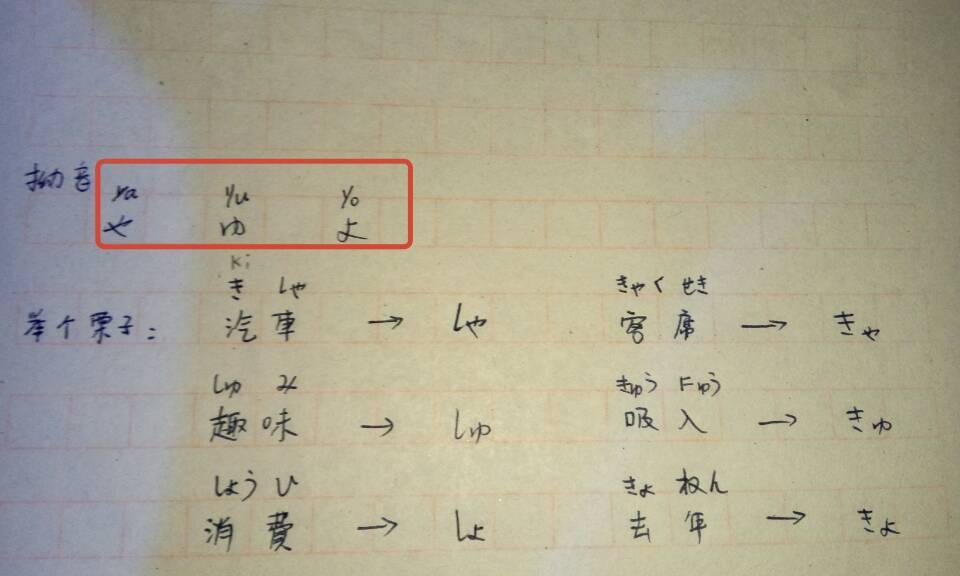 拗音 ya yu yo
や ゆ よ
ki
き しゃ きゃく せき
举个栗子： 汽車 → しゃ 客席 → きゃ
しゅ み きゅう にゅう
趣味 → しゅ 吸入 → きゅ
しょう ひ きょ ねん
消費 → しょ 去年 → きょ